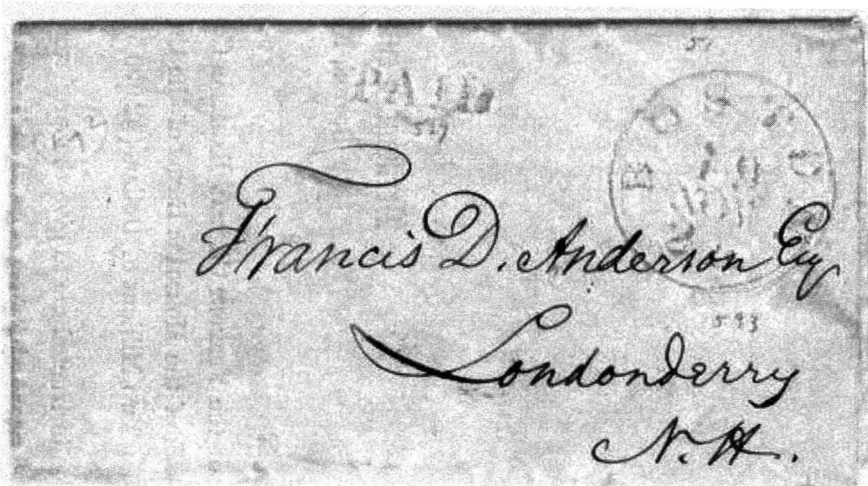 51
PAID
BOSTO
10
NOV
Francis D. Anderson Esq
593
Londonderry
N.H.